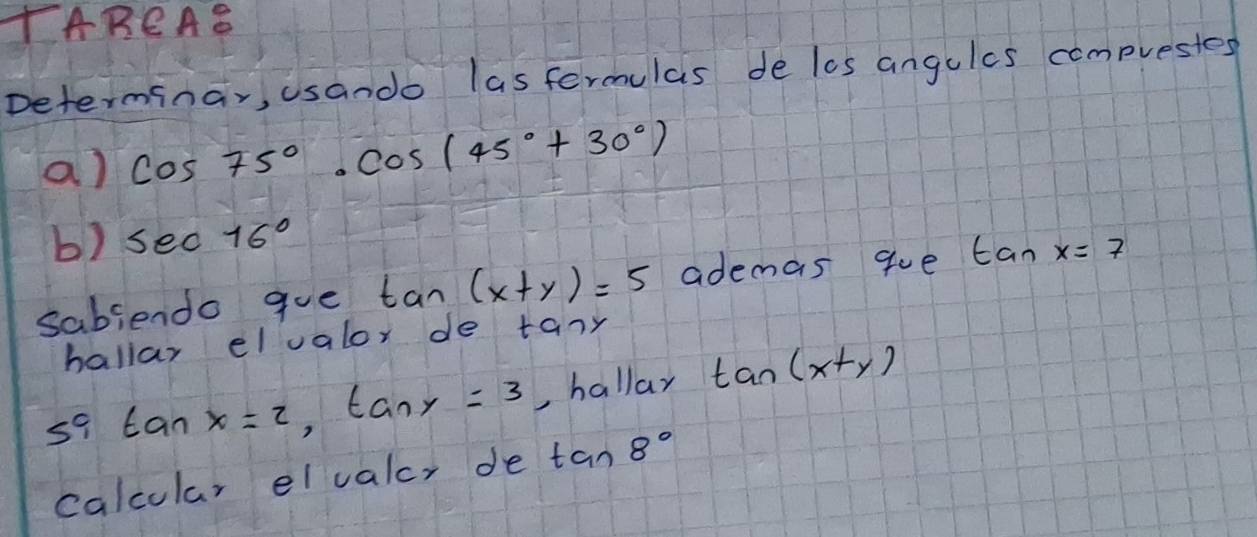 TAREA:
Determinar, usando las formulas de los angulos compuestos
a) cos 75° . cos (45° + 30°)
b) sec 16°
sabiendo que tan (x+y) = 5 ademas que tan x = 7
hallar el valor de tany
si tan x = 2, tany = 3, hallar tan (x+y)
calcular el valor de tan 8°